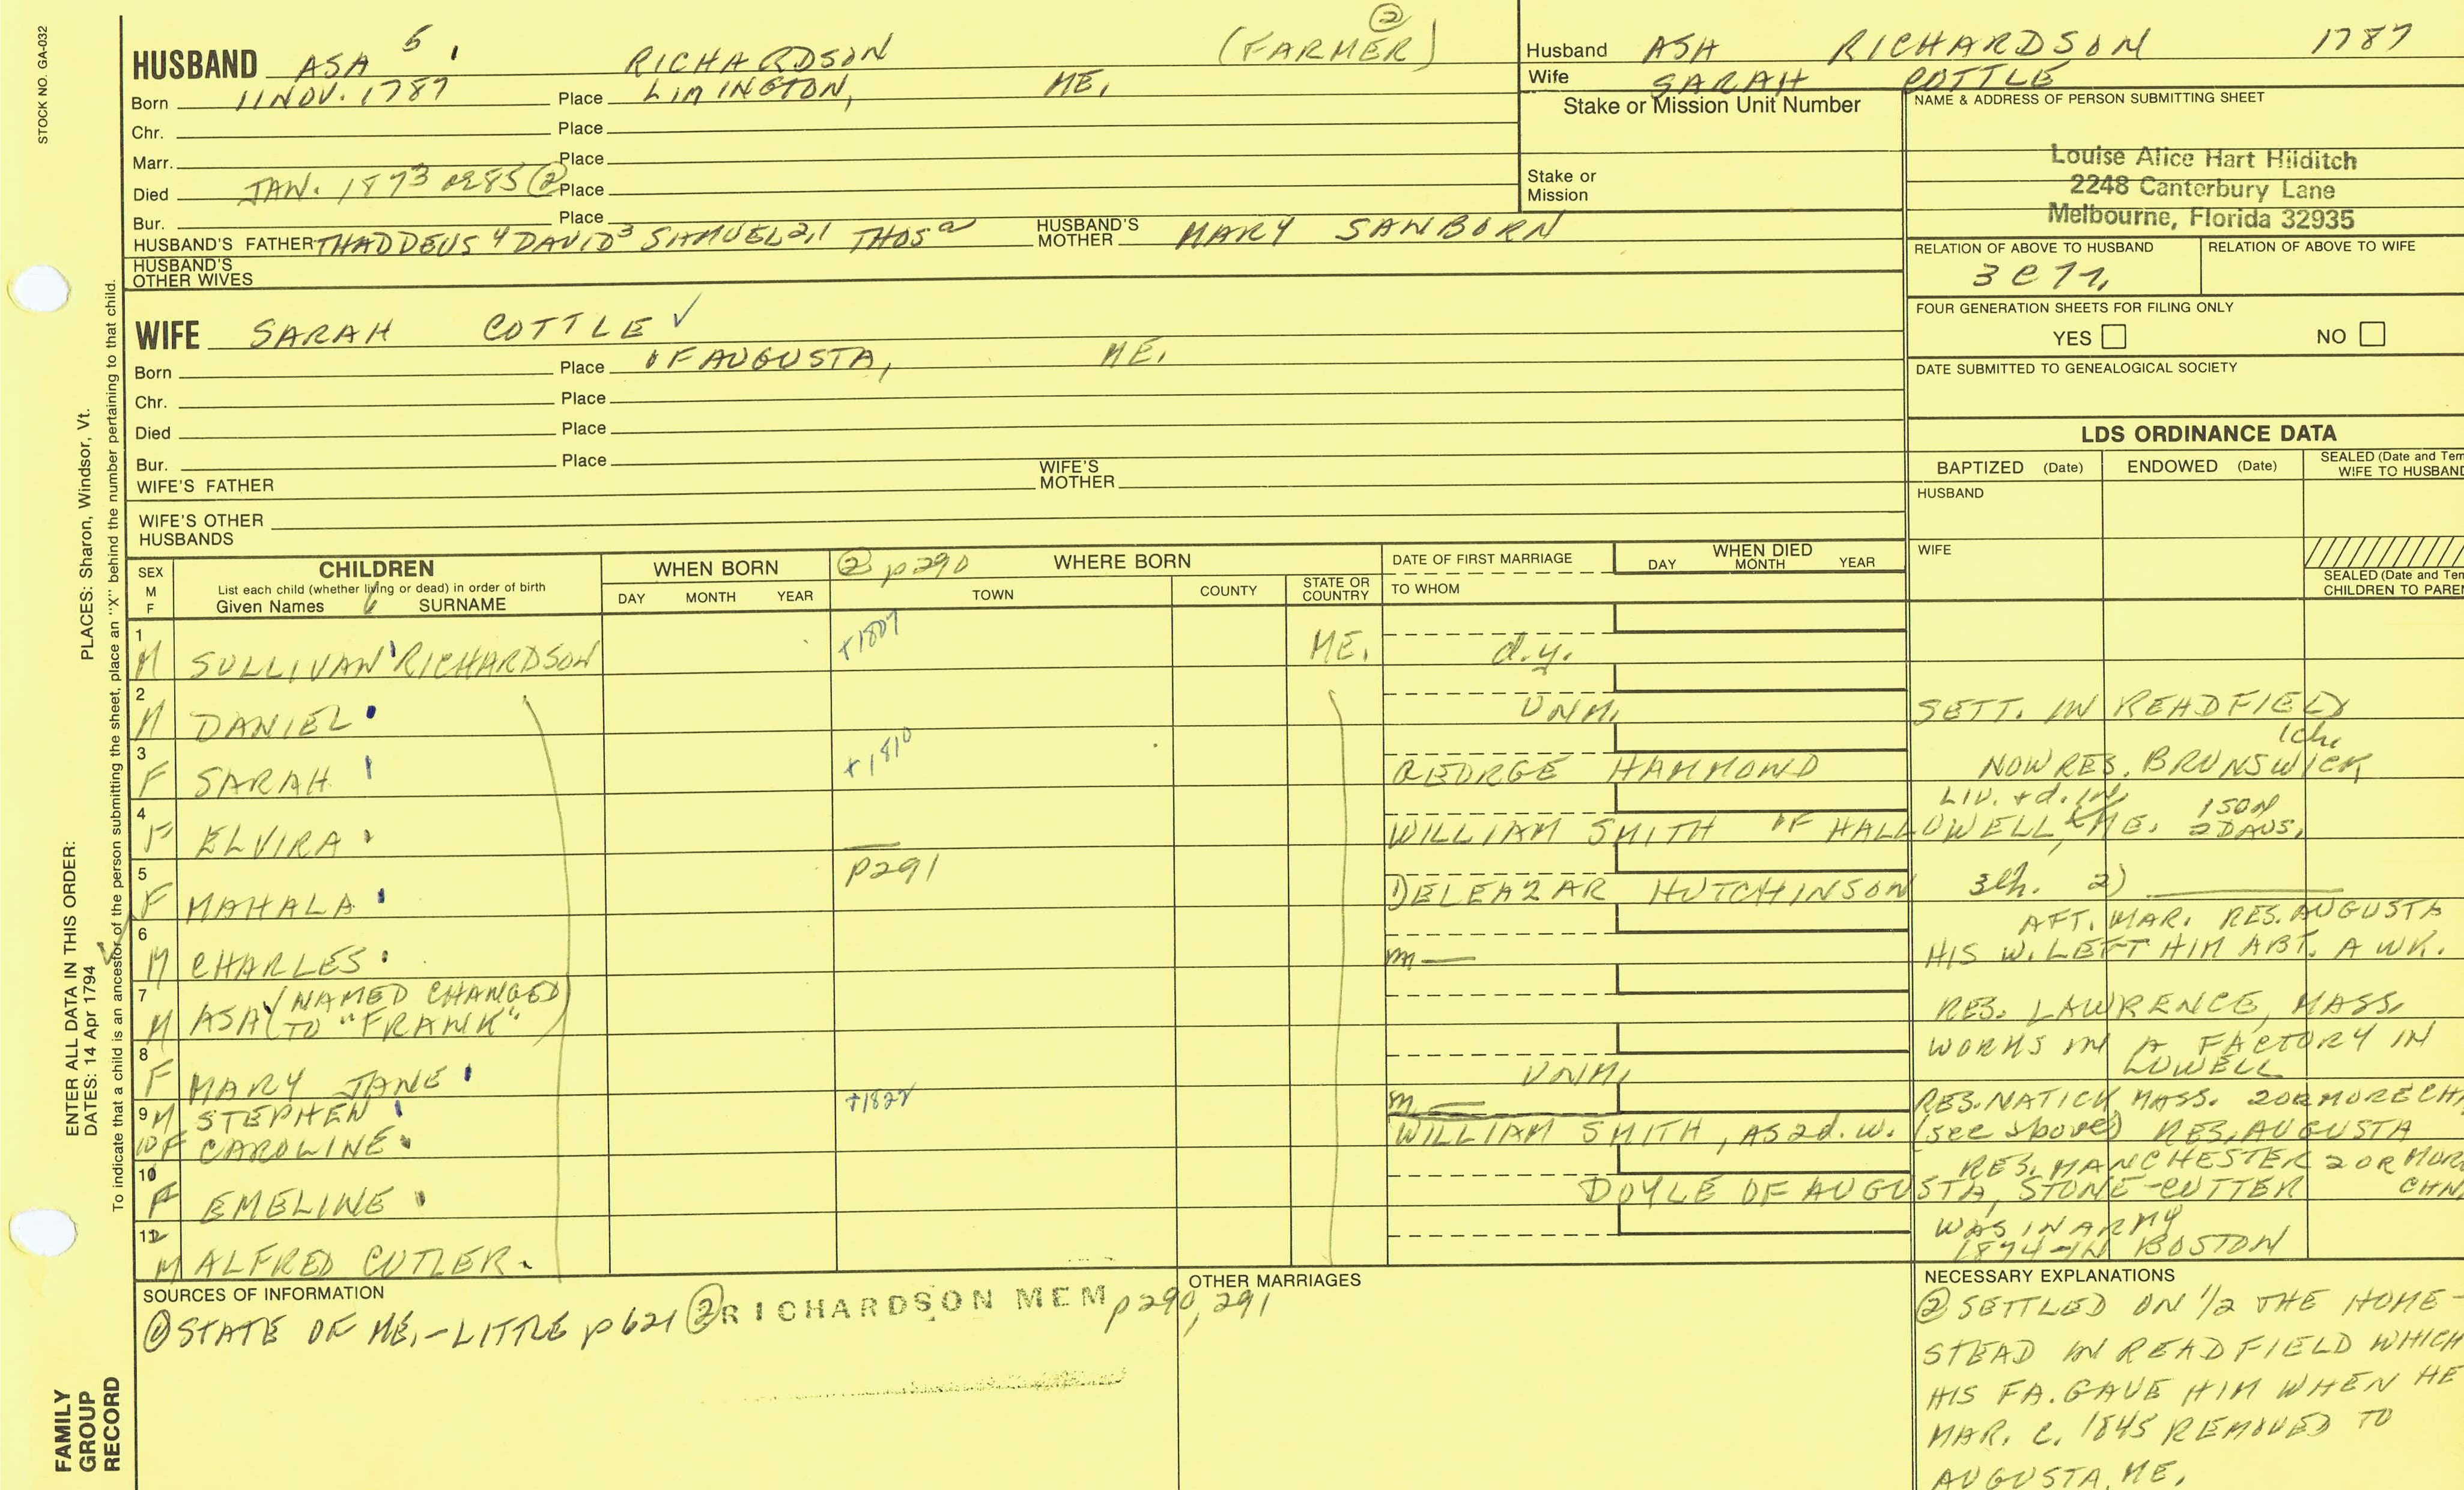 STOCK NO. GA-032
PLACES: Sharon, Windsor, Vt.
ENTER ALL DATA IN THIS ORDER:
DATES: 14 Apr 1794
To indicate that a child is an ancestor of the person submitting the sheet, place an "X" behind the number pertaining to that child.
FAMILY
GROUP
RECORD
HUSBAND ASA 5 RICHARDSON (FARMER) ②
Born 11 NOV. 1787 Place LIMINGTON, ME.
Chr. Place
Marr. Place
Died JAN. 1873 ae 85 ② Place
Bur. Place
HUSBAND'S FATHER THADDEUS 4 DAVID 3 SAMUEL 2,1 THOS a HUSBAND'S MOTHER MARY SANBORN
HUSBAND'S
OTHER WIVES
WIFE SARAH COTTLE ✓
Born Place OF AUGUSTA, ME.
Chr. Place
Died Place
Bur. Place
WIFE'S FATHER WIFE'S MOTHER
WIFE'S OTHER
HUSBANDS
Husband ASA RICHARDSON 1787
Wife SARAH COTTLE
Stake or Mission Unit Number
Stake or
Mission
NAME & ADDRESS OF PERSON SUBMITTING SHEET
Louise Alice Hart Hilditch
2248 Canterbury Lane
Melbourne, Florida 32935
RELATION OF ABOVE TO HUSBAND RELATION OF ABOVE TO WIFE
FOUR GENERATION SHEETS FOR FILING ONLY
YES NO
DATE SUBMITTED TO GENEALOGICAL SOCIETY
LDS ORDINANCE DATA
BAPTIZED (Date) ENDOWED (Date) SEALED (Date and Tem
WIFE TO HUSBAND
HUSBAND
WIFE
SEALED (Date and Te
CHILDREN TO PARE
SEX
M
F
CHILDREN
List each child (whether living or dead) in order of birth
Given Names SURNAME
WHEN BORN
DAY MONTH YEAR
② p290 WHERE BORN
TOWN COUNTY STATE OR COUNTRY
DATE OF FIRST MARRIAGE
TO WHOM
WHEN DIED
DAY MONTH YEAR
1 M SULLIVAN RICHARDSON +1807 ME. d.y.
2 M DANIEL UNM. SETT. IN READFIELD
3 F SARAH +1810 GEORGE HAMMOND 1 ch. NOW RES. BRUNSWICK
4 F ELVIRA WILLIAM SMITH OF HALLOWELL, ME. LIV. + d. IN 1 SON 2 DAUS.
5 F MAHALA p291 1) ELEAZAR HUTCHINSON 3 ch. 2)
AFT. MAR. RES. AUGUSTA
6 M CHARLES m — HIS W. LEFT HIM ABT. A WK.
7 M ASA (NAMED CHANGED TO "FRANK") RES. LAWRENCE, MASS.
8 F MARY JANE UNM. WORKS IN A FACTORY IN LOWELL
9 M STEPHEN +1822 m. — RES. NATICK MASS. 2 OR MORE CH
10 F CAROLINE WILLIAM SMITH, AS 2d. W. (see above) RES. AUGUSTA
10 F EMELINE DOYLE OF AUGUSTA, STONE-CUTTER RES. MANCHESTER 2 OR MOR CHN
12 M ALFRED CUTLER. WAS IN ARMY
1874 - IN BOSTON
SOURCES OF INFORMATION
① STATE OF ME. - LITTLE p 621 ② RICHARDSON MEM p290, 291
OTHER MARRIAGES
NECESSARY EXPLANATIONS
② SETTLED ON 1/2 THE HOME-
STEAD IN READFIELD WHICH
HIS FA. GAVE HIM WHEN HE
MAR. C. 1845 REMOVED TO
AUGUSTA, ME.